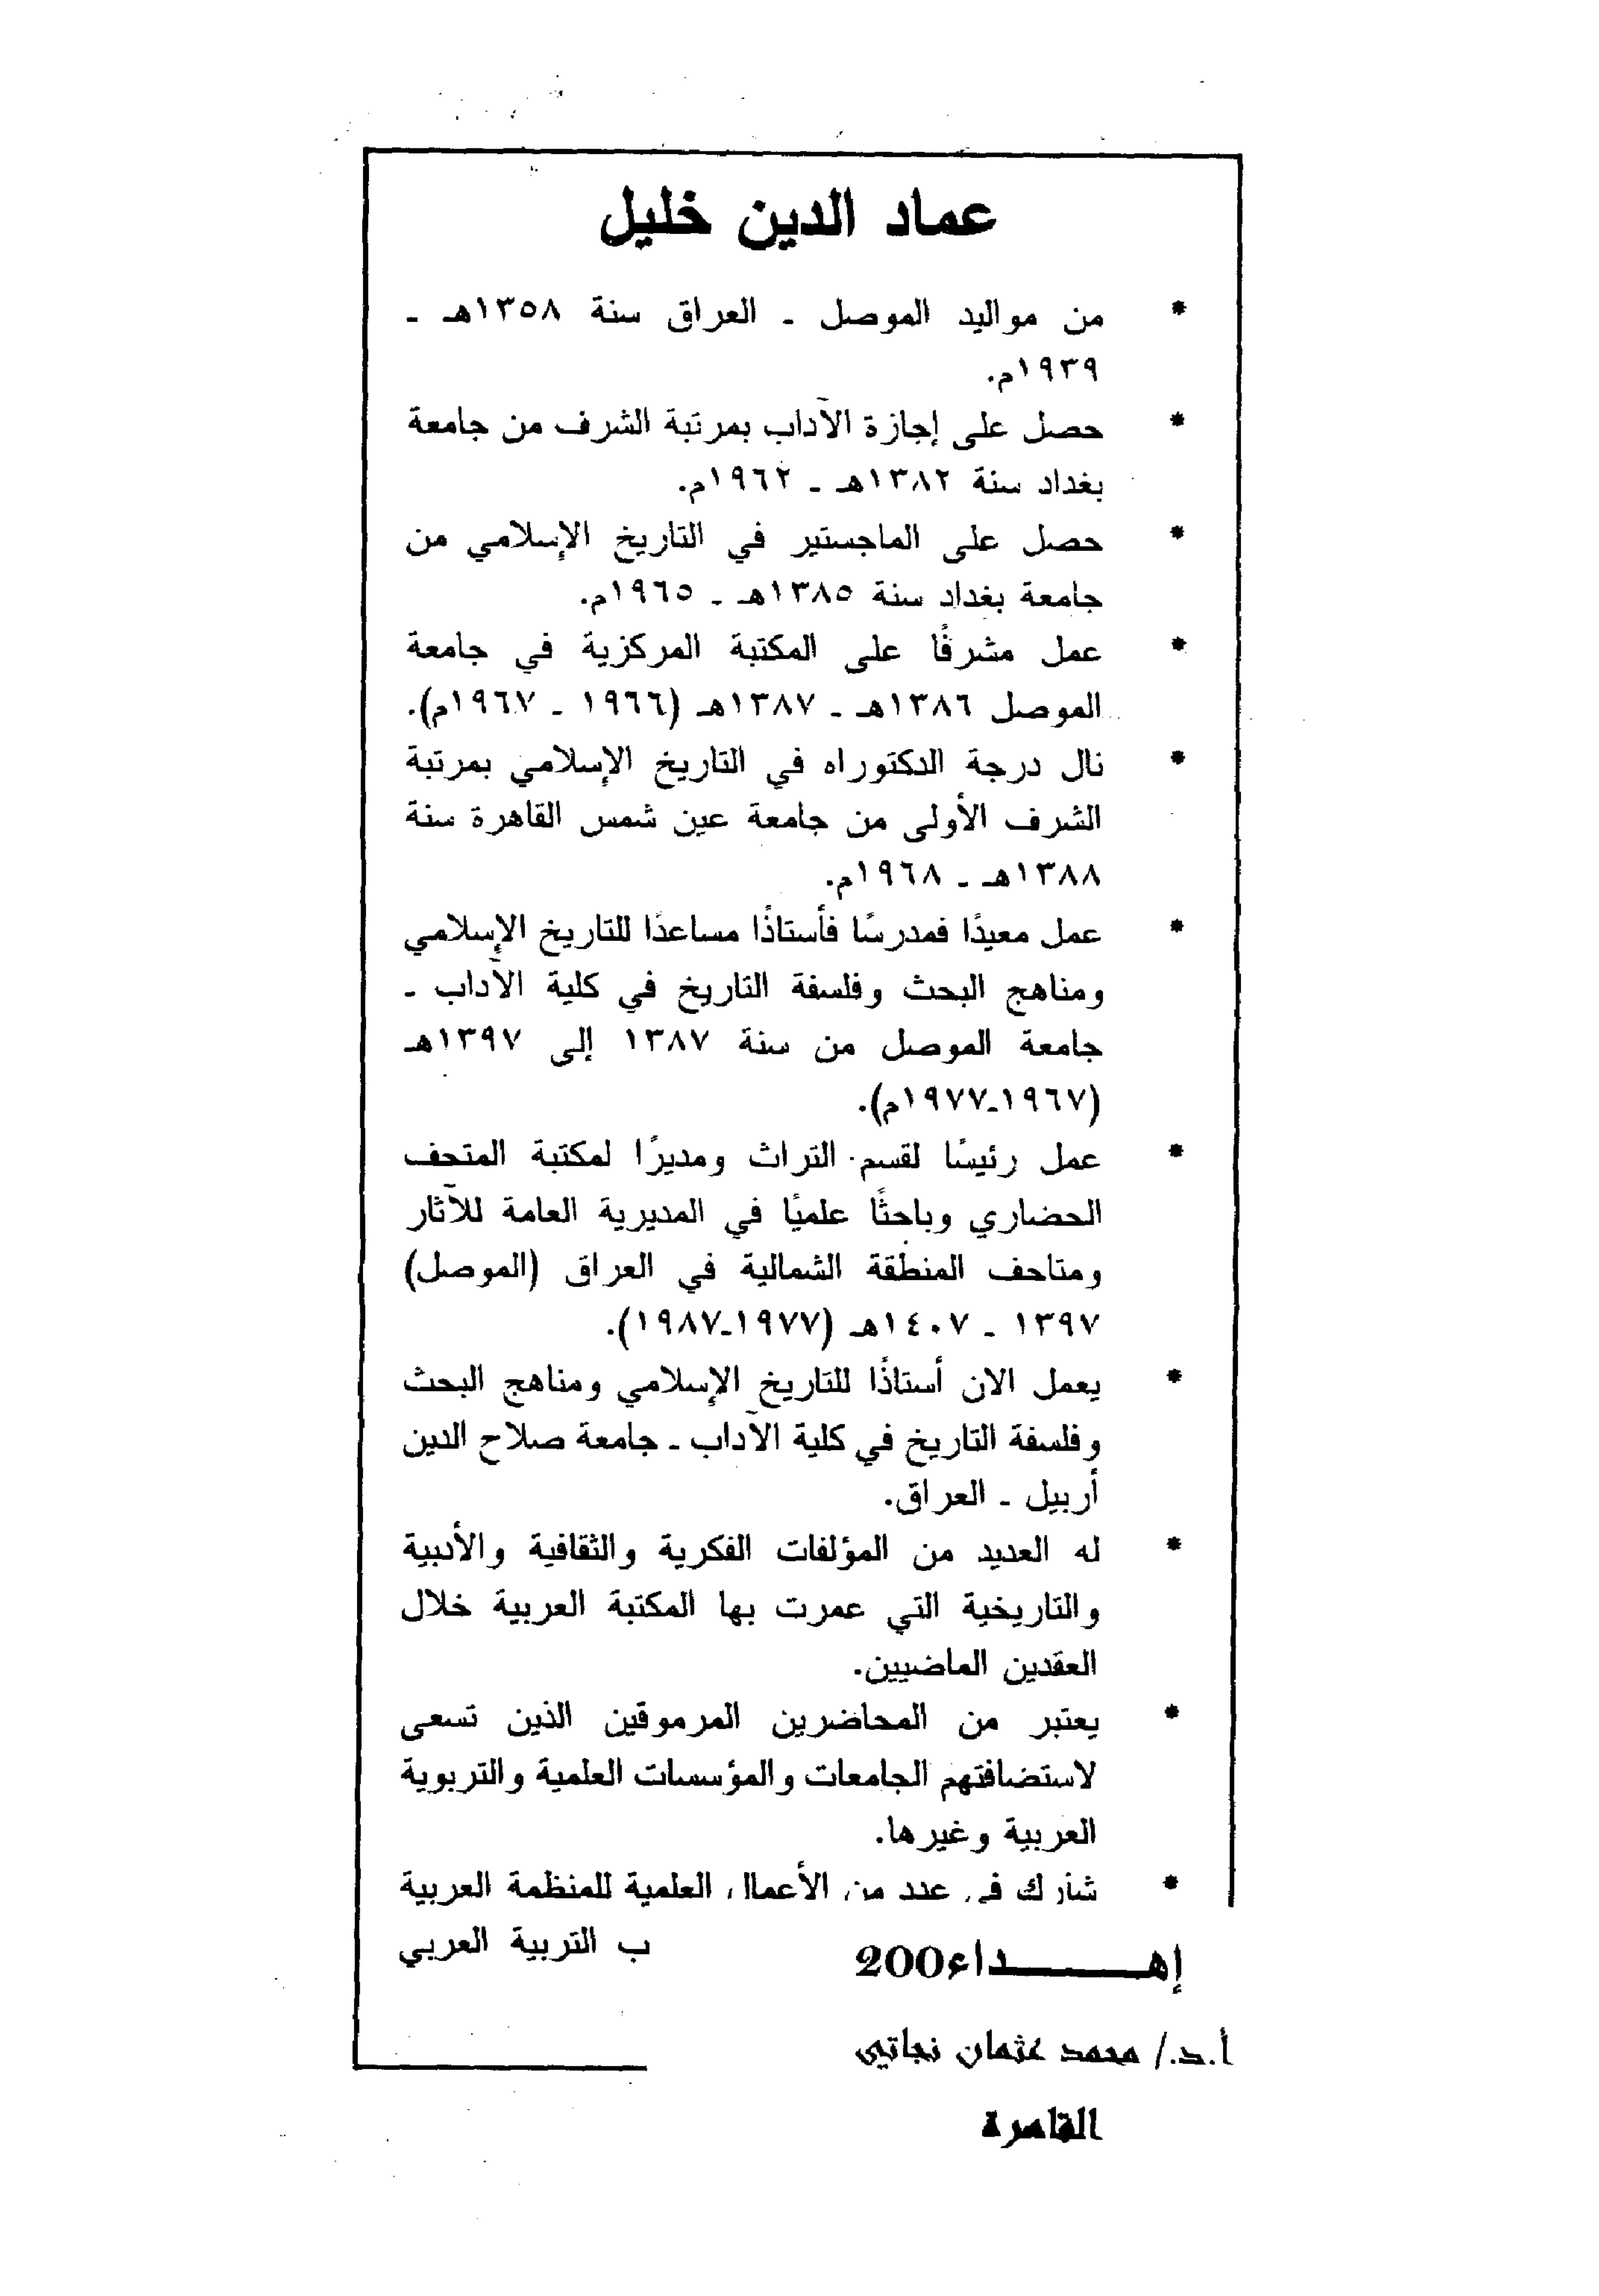 عماد الدين خليل
* من مواليد الموصل ـ العراق سنة ١٣٥٨هـ ـ
١٩٣٩م.
* حصل على إجازة الآداب بمرتبة الشرف من جامعة
بغداد سنة ١٣٨٢هـ ـ ١٩٦٢م.
* حصل على الماجستير في التاريخ الإسلامي من
جامعة بغداد سنة ١٣٨٥هـ ـ ١٩٦٥م.
* عمل مشرفًا على المكتبة المركزية في جامعة
الموصل ١٣٨٦هـ ـ ١٣٨٧هـ (١٩٦٦ ـ ١٩٦٧م).
* نال درجة الدكتوراه في التاريخ الإسلامي بمرتبة
الشرف الأولى من جامعة عين شمس القاهرة سنة
١٣٨٨هـ ـ ١٩٦٨م.
* عمل معيدًا فمدرسًا فأستاذًا مساعدًا للتاريخ الإسلامي
ومناهج البحث وفلسفة التاريخ في كلية الآداب ـ
جامعة الموصل من سنة ١٣٨٧ إلى ١٣٩٧هـ
(١٩٦٧ـ١٩٧٧م).
* عمل رئيسًا لقسم التراث ومديرًا لمكتبة المتحف
الحضاري وباحثًا علميًا في المديرية العامة للآثار
ومتاحف المنطقة الشمالية في العراق (الموصل)
١٣٩٧ ـ ١٤٠٧هـ (١٩٧٧ـ١٩٨٧).
* يعمل الان أستاذًا للتاريخ الإسلامي ومناهج البحث
وفلسفة التاريخ في كلية الآداب ـ جامعة صلاح الدين
أربيل ـ العراق.
* له العديد من المؤلفات الفكرية والثقافية والأدبية
والتاريخية التي عمرت بها المكتبة العربية خلال
العقدين الماضيين.
* يعتبر من المحاضرين المرموقين الذين تسعى
لاستضافتهم الجامعات والمؤسسات العلمية والتربوية
العربية وغيرها.
* شارك في عدد من الأعمال العلمية للمنظمة العربية
ب التربية العربي
إهـــداء200
أ.د./ محمد عثمان نجاتي
القاهرة